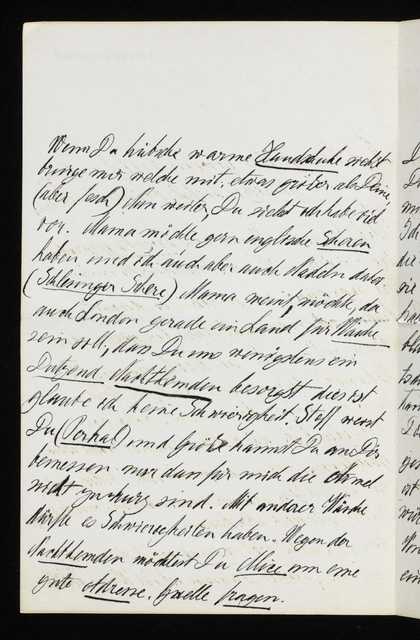 Wenn Du hübsche warme Handschuhe siehst
bringe mir welche mit, etwas größer als Deine
(aber fesch) Nun weiter, Du siehst ich habe viel
vor. Mama möchte gern englische Scheren
haben und ich auch aber auch Nadeln dazu
Schere) Mama meint, möchte, da
auch London gerade ein Land für Wäsche
sein soll, dass Du uns wenigstens ein
Dutzend Nachthemden besorgst dies ist
glaube ich keine Schwierigkeit. Stoff weist
Du und Größe kannst Du an Dir
bemessen nur dass für mich die Ärmel
nicht zu kurz sind. Mit anderer Wäsche
dürfte es Schwierigkeiten haben. Wegen der
Nachthemden möchtest Du um eine
gute Adresse. Quelle fragen.